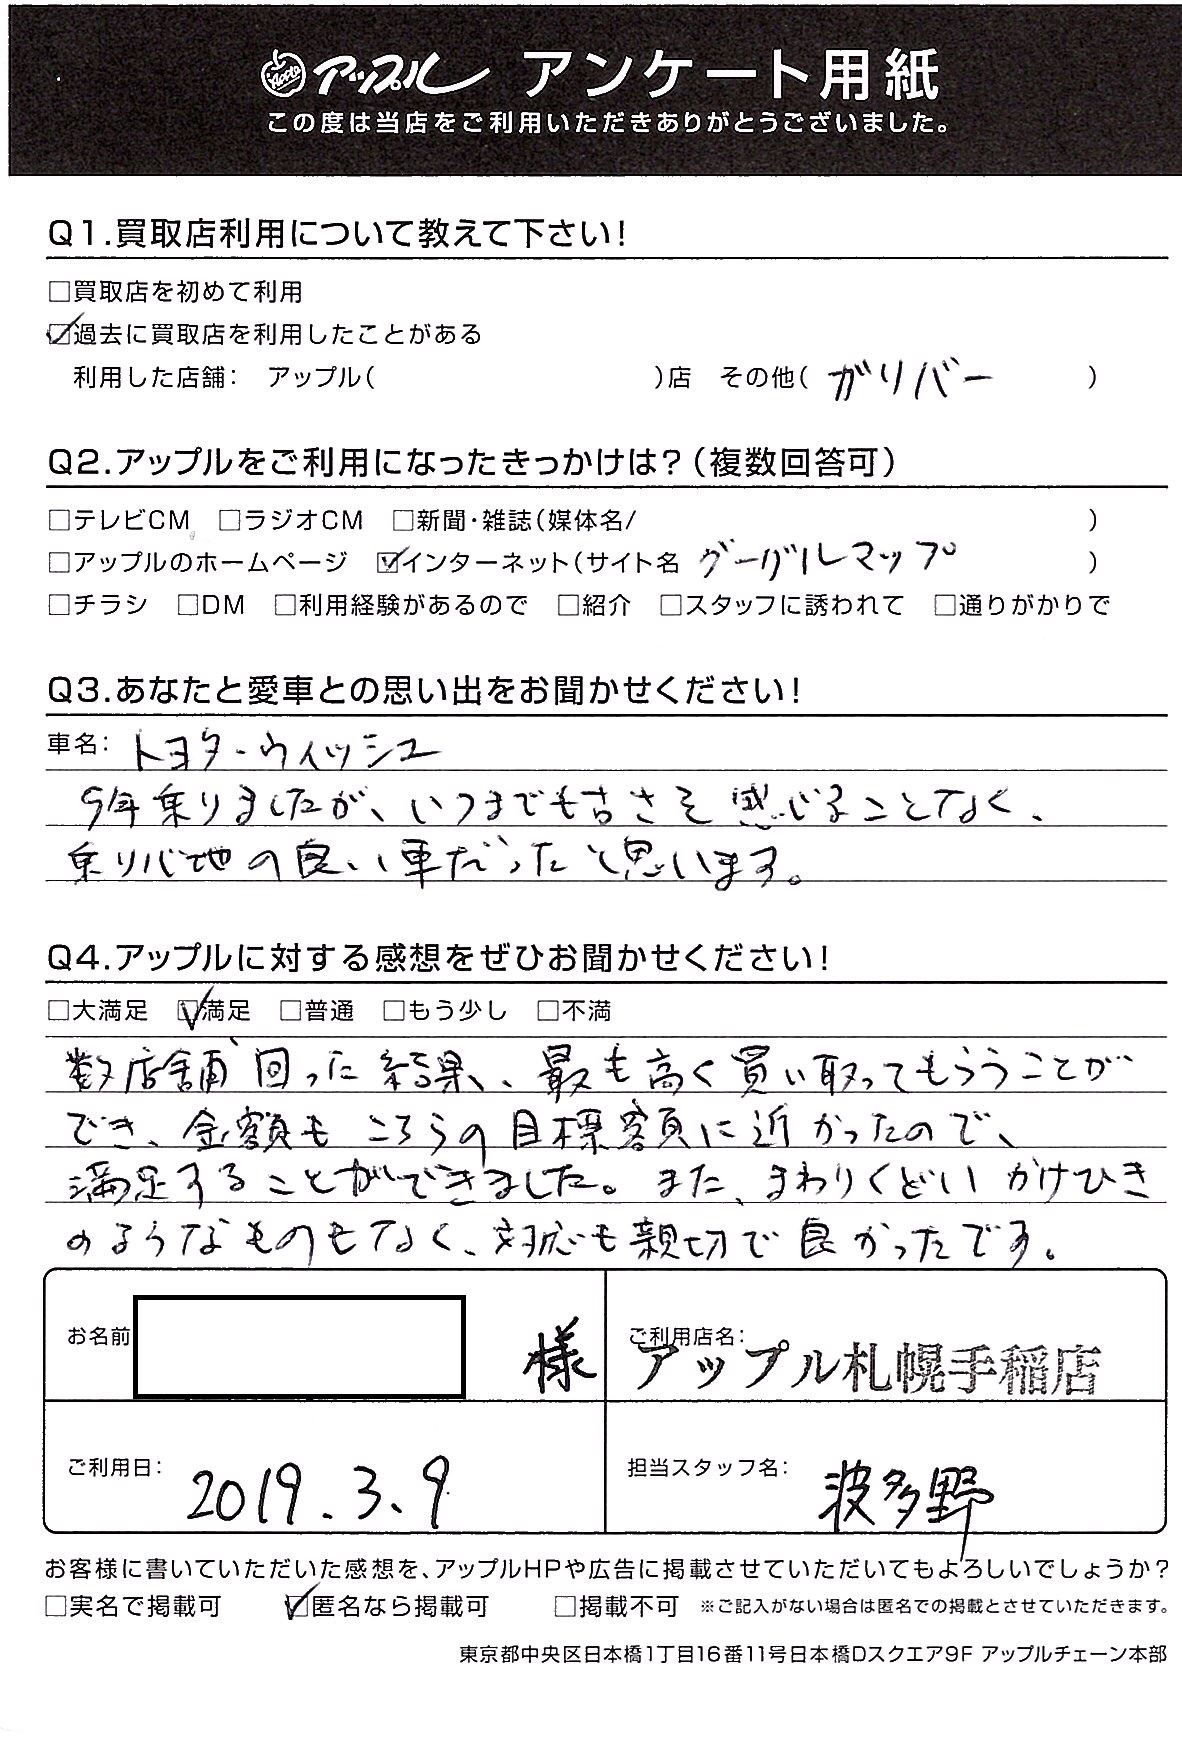 Apple アップル アンケート用紙
この度は当店をご利用いただきありがとうございました。
Q1.買取店利用について教えて下さい!
□買取店を初めて利用
☑過去に買取店を利用したことがある
利用した店舗: アップル( )店 その他( ガリバー )
Q2.アップルをご利用になったきっかけは?(複数回答可)
□テレビCM □ラジオCM □新聞・雑誌(媒体名/ )
□アップルのホームページ ☑インターネット(サイト名 グーグルマップ )
□チラシ □DM □利用経験があるので □紹介 □スタッフに誘われて □通りがかりで
Q3.あなたと愛車との思い出をお聞かせください!
車名: トヨタ・ウィッシュ
9年乗りましたが、いつまでも古さを感じることなく、
乗り心地の良い車だったと思います。
Q4.アップルに対する感想をぜひお聞かせください!
□大満足 ☑満足 □普通 □もう少し □不満
数店舗回った結果、最も高く買い取ってもらうことが
でき、金額もこちらの目標額に近かったので、
満足することができました。また、まわりくどいかけひき
のようなものもなく、対応も親切で良かったです。
お名前 様 ご利用店名:
アップル札幌手稲店
ご利用日: 2019.3.9 担当スタッフ名: 波多野
お客様に書いていただいた感想を、アップルHPや広告に掲載させていただいてもよろしいでしょうか?
□実名で掲載可 ☑匿名なら掲載可 □掲載不可 ※ご記入がない場合は匿名での掲載とさせていただきます。
東京都中央区日本橋1丁目16番11号日本橋Dスクエア9F アップルチェーン本部